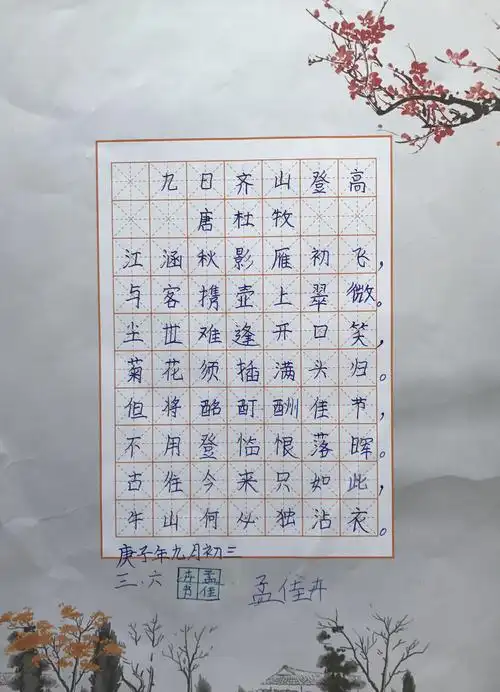 九日齐山登高
唐杜牧
江涵秋影雁初飞，
与客携壶上翠微。
尘世难逢开口笑，
菊花须插满头归。
但将酩酊酬佳节，
不用登临恨落晖。
古往今来只如此，
牛山何必独沾衣。
庚子年九月初三
三.六
孟佳卉书
孟佳卉